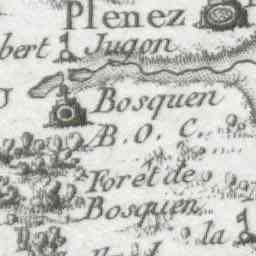 Plenez
bert Jugon
Bosquen
AB. O. C.
Forêt de
Bosquen
la